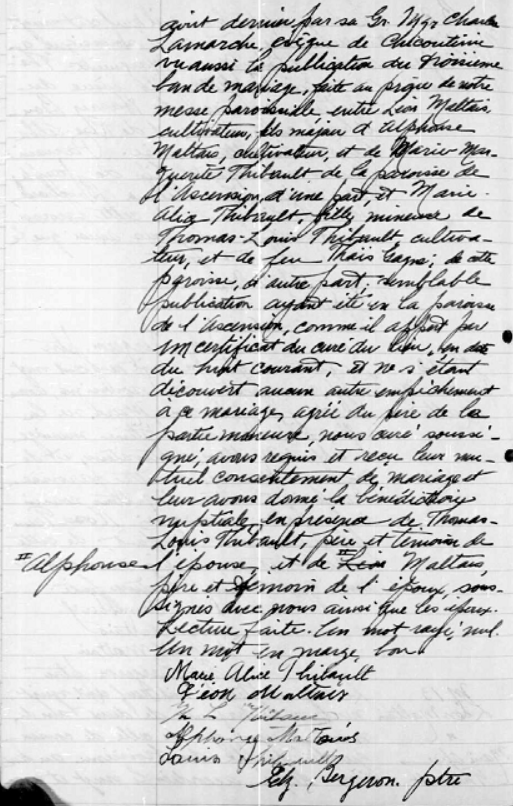 août dernier par sa Gr. Mgr Charles
Lamarche, évêque de Chicoutimi
vu aussi la publication du troisième
ban de mariage, faite au prône de notre
messe paroissiale, entre Léon Maltais
cultivateur, fils majeur d'Alphonse
Maltais, cultivateur, et de Marie-Mar-
guerite Thibault de la paroisse de
l'Ascension, d'une part, et Marie-
Alice Thibault, fille mineure de
Thomas-Louis Thibault, cultiva-
teur, et de feu Thaïs Gagné, de cette
paroisse, d'autre part; semblable
publication ayant été en la paroisse
de l'Ascension, comme il appert par
un certificat du curé du lieu, en date
du huit courant, et ne s'étant
découvert aucun autre empêchement
à ce mariage, agréé du père de la
partie mineure, nous curé soussi-
gné, avons requis et reçu leur mu-
tuel consentement de mariage et
leur avons donné la bénédiction
nuptiale, en présence de Thomas-
Louis Thibault, père et témoin de
# Alphonse l'épouse, et de # Léon Maltais,
père et témoin de l'époux, sous-
signés avec nous ainsi que les époux.
Lecture faite. Un mot rayé nul.
Un mot en marge bon
Marie Alice Thibault
Léon Maltais
L Thibault
Alphonse Maltais
Louis Thibault
Bergeron. ptre